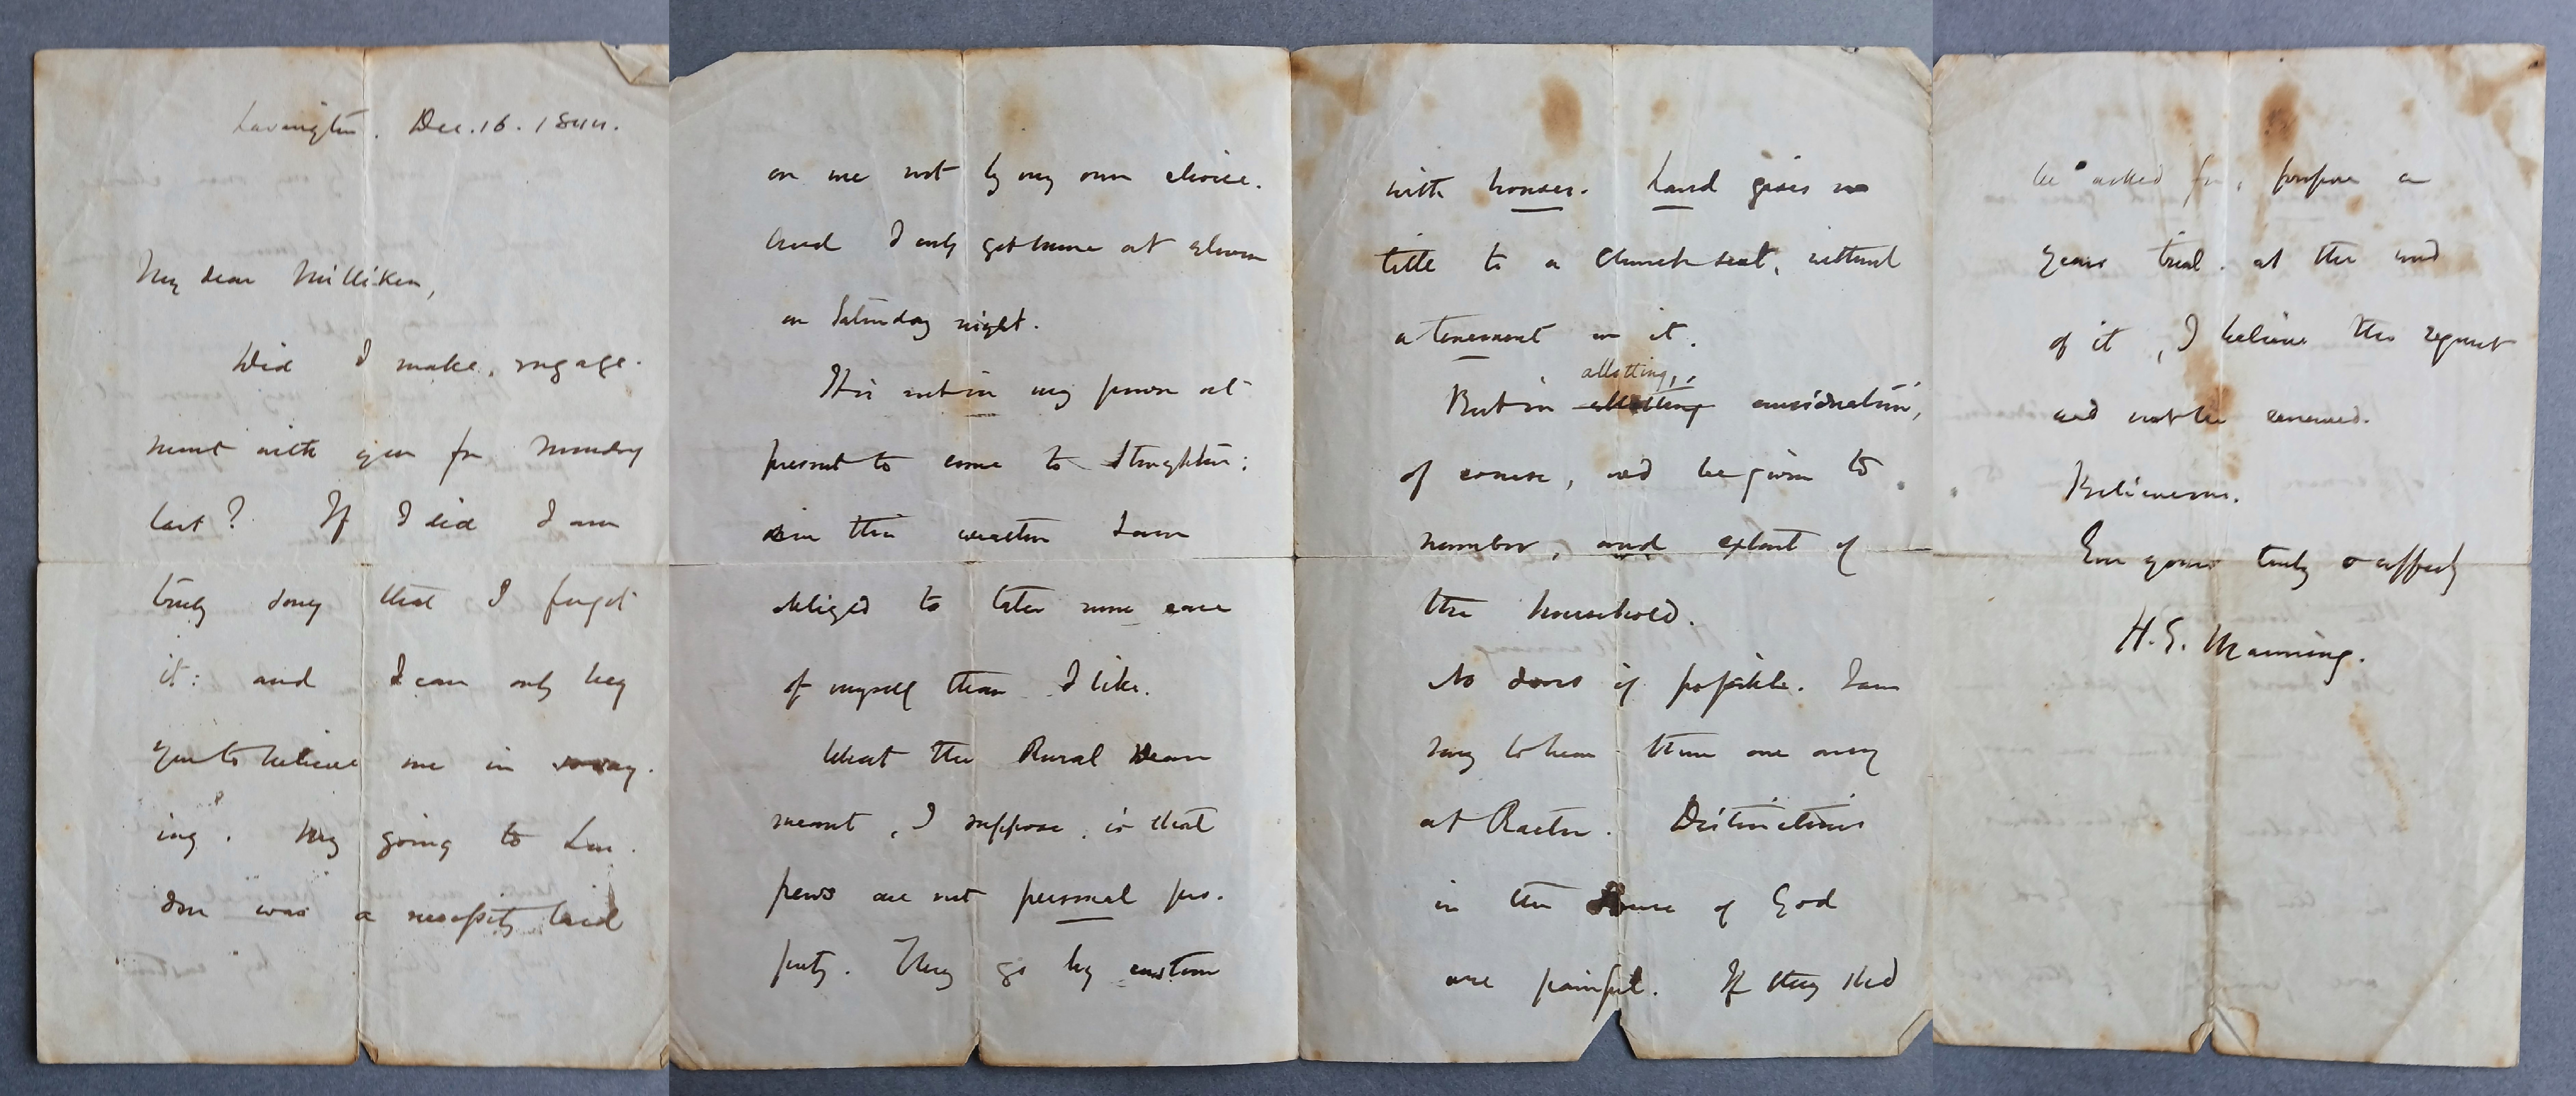 Lavington. Dec. 16. 1844.
My dear Milliken,
Did I make, engage-
ment with you for Monday
last? If I did I am
truly sorry that I forgot
it: and I can only beg
you to believe me in so say-
ing. My going to Lon-
don was a necessity laid
on me not by my own choice.
And I only got home at eleven
on Saturday night.
It is not in my power at
present to come to Stoughton:
in this weather I am
obliged to take more care
of myself than I like.
What the Rural Dean
meant, I suppose, is that
pews are not personal pro-
perty. They go by custom
with houses. Land gives no
title to a Church seat, without
a tenement on it.
allotting,
But in allotting consideration,
of course, wd be given to
number, and extent of
the household.
No doors if possible. I am
sorry to hear there are any
at Racton. Distinctions
in the House of God
are painful. If they shd
be asked for, propose a
years trial. at the end
of it, I believe the request
wd not be renewed.
Believe me.
Ever yours truly & affecly
H. E. Manning.